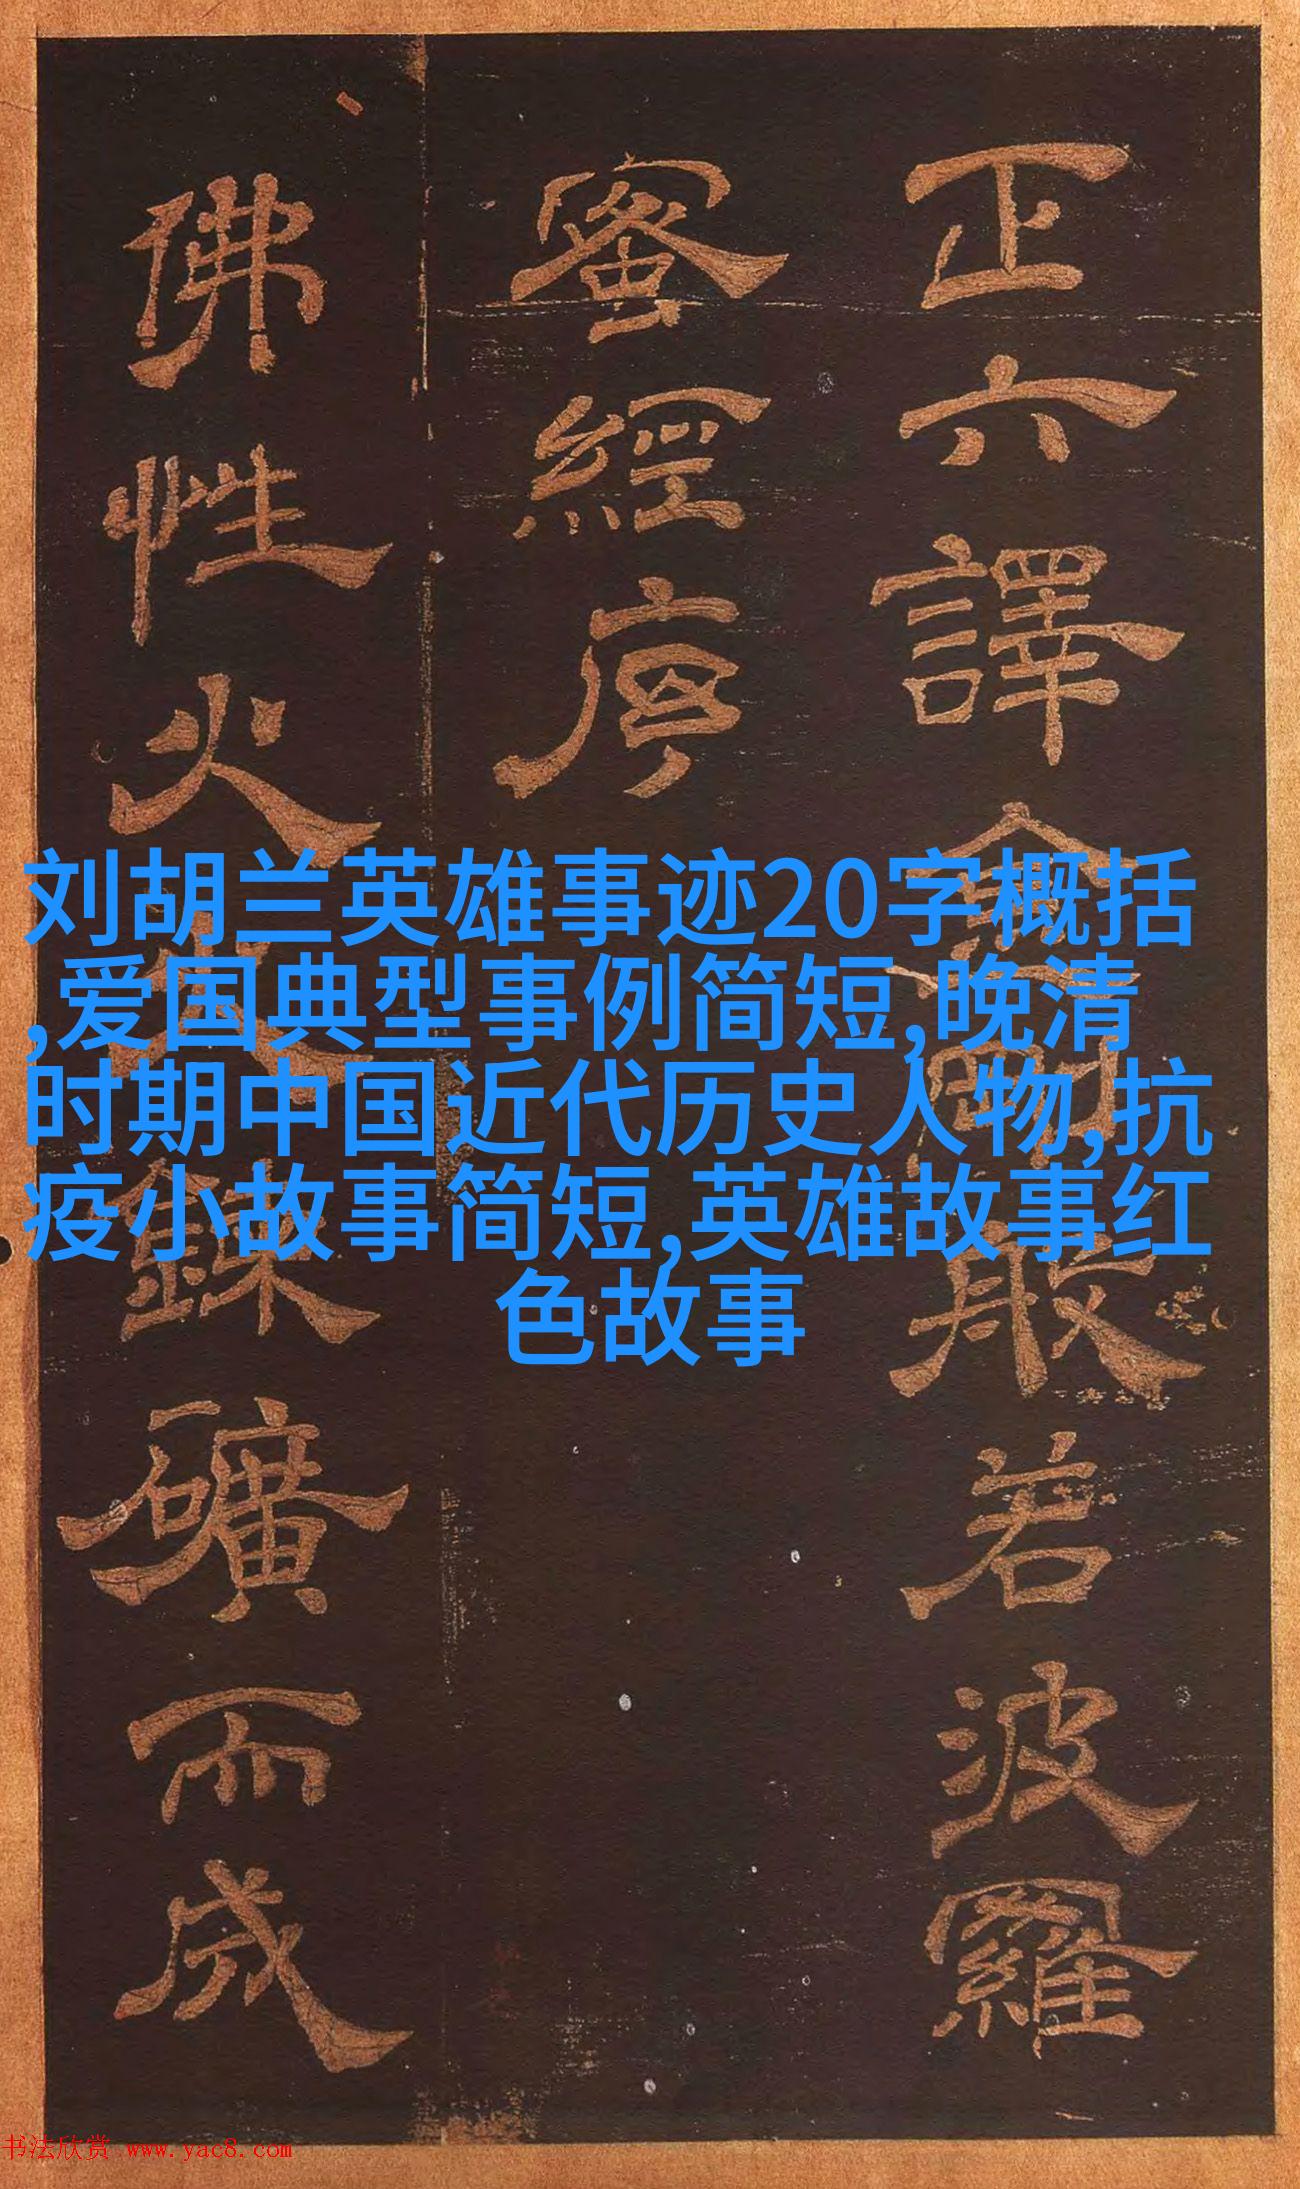 正六譯金剛般若波羅
蜜經序
佛性火
鍊礦而成
刘胡兰英雄事迹20字概括
,爱国典型事例简短,晚清
时期中国近代历史人物,抗
疫小故事简短,英雄故事红
色故事
书法欣赏 www.yac8.com